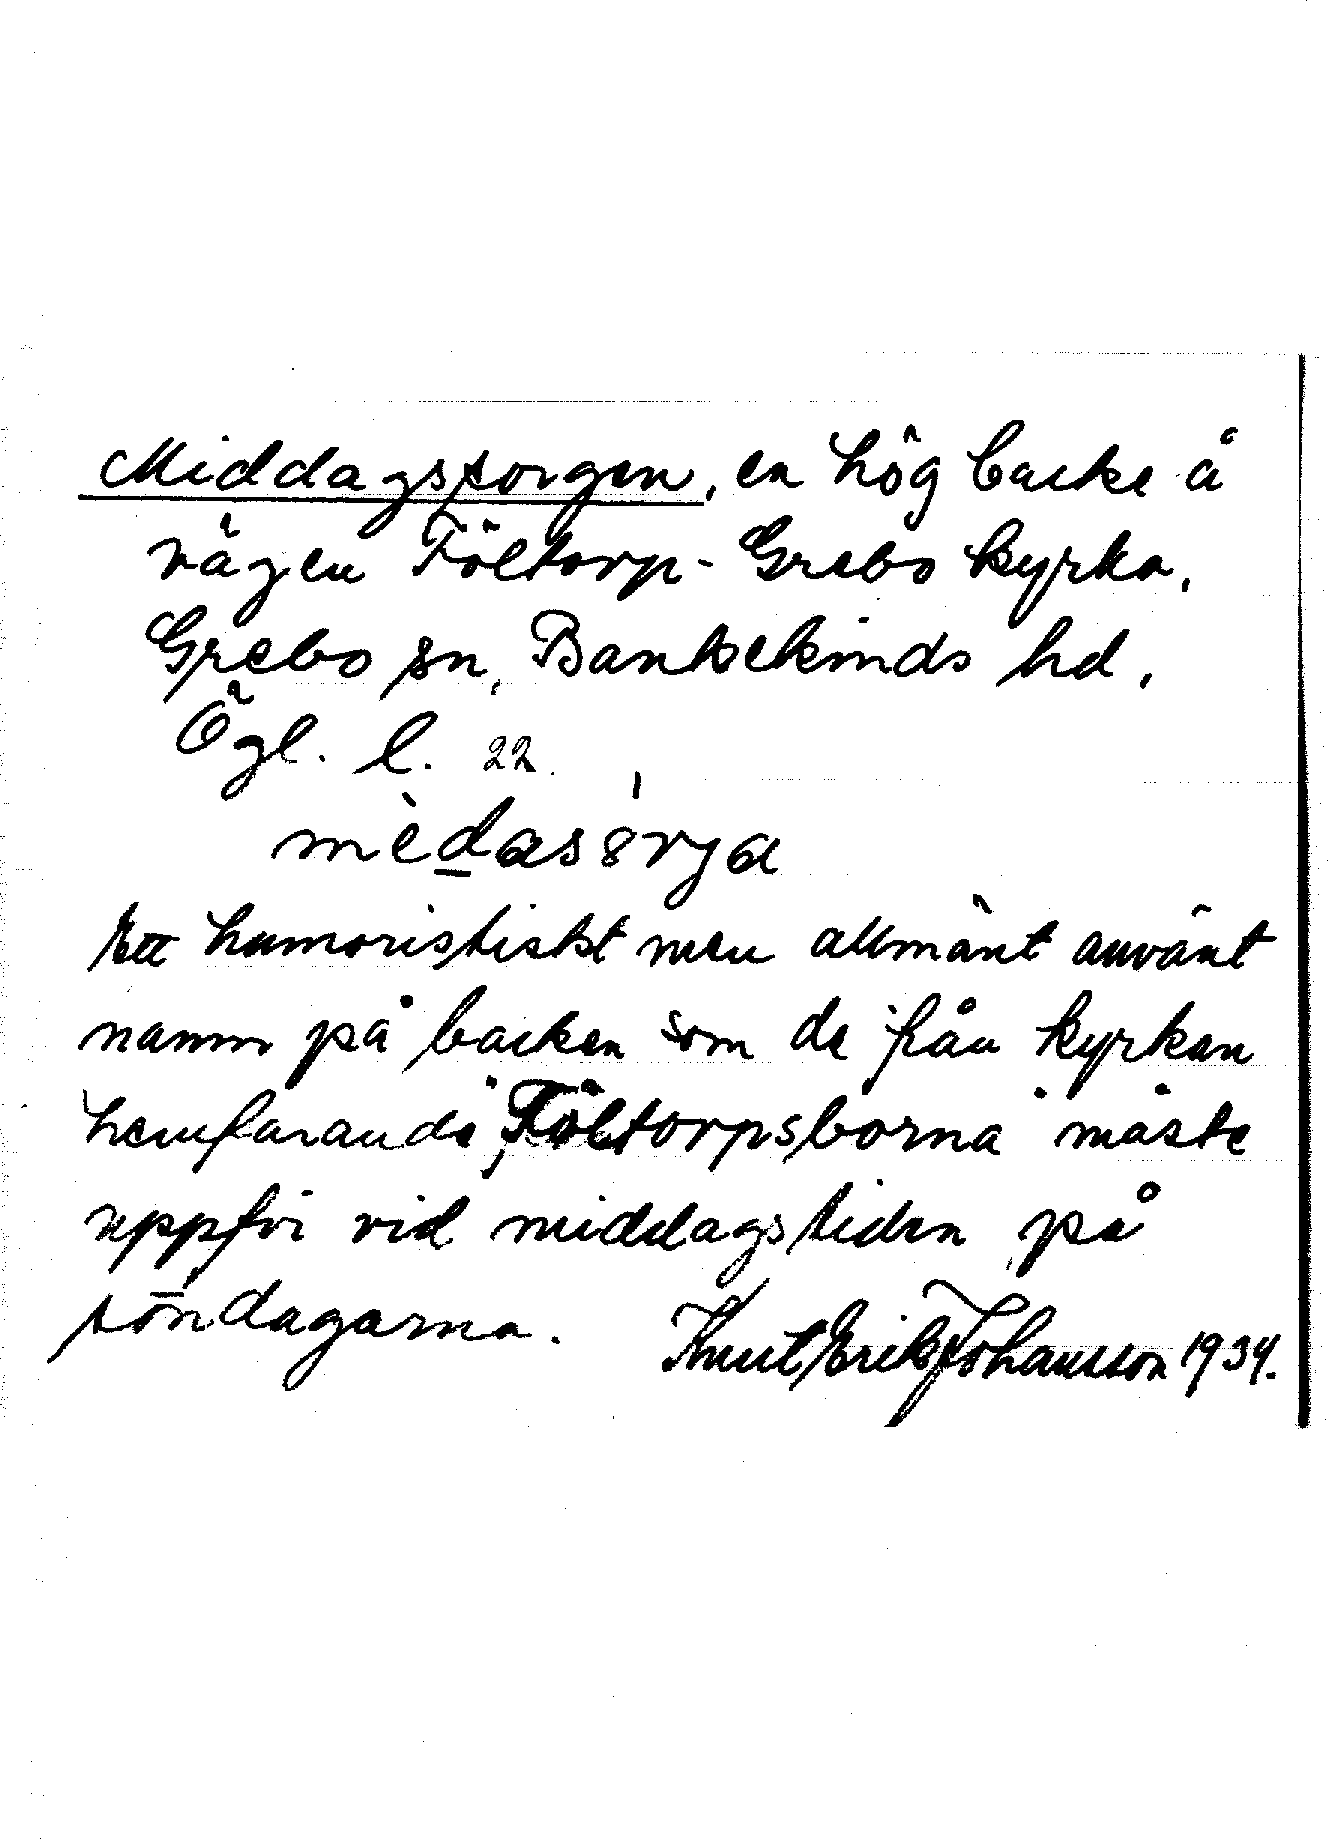 Middagssorgen, en hög backe å
vägen Föltorp - Grebo kyrka,
Grebo sn, Bankekinds hd,
Ögl. l. 22.
mèdasörya
Ett humoristiskt men allmänt använt
namn på backen som de från kyrkan
hemfarande, Föltorpsborna måste
uppför vid middagstiden på
söndagarna. Knut Erik Johansson 1934.